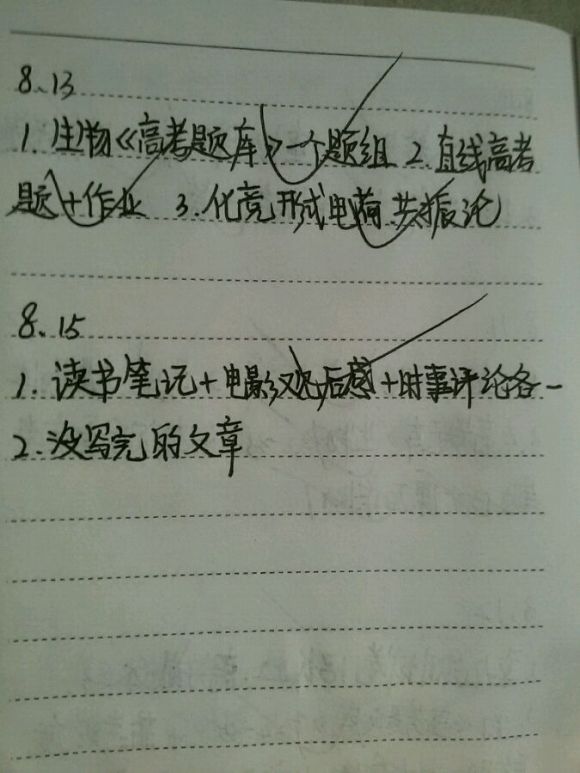 8、13
1. 生物《高考题库》一个题组 2. 直线高考
题+作业 3. 化竞形式电荷 共振论
8、15
1. 读书笔记+电影观后感+时事评论各一
2. 没写完的文章